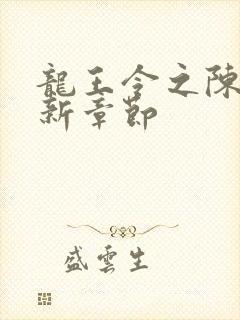 龍王令之陳
新章節
盛雲生